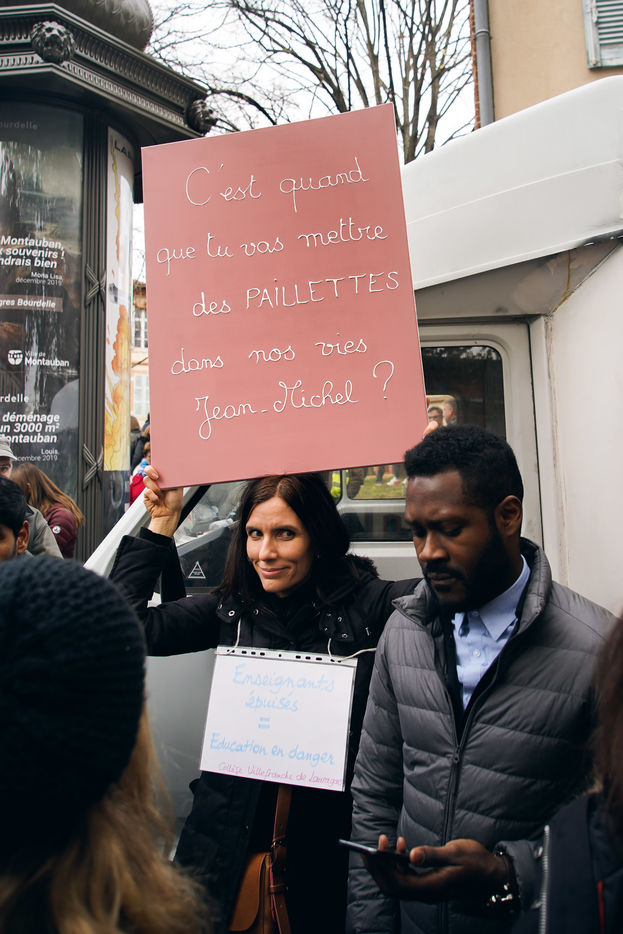 C'est quand
que tu vas mettre
des PAILLETTES
dans nos vies
Jean-Michel ?
Enseignants
épuisés
=
Education en danger
Collège Villefranche de Lauragais
ourdelle
Montauban,
x souvenirs !
ndrais bien
Mona Lisa,
décembre 2019
gres Bourdelle
Ville de
Montauban
rdelle
déménage
un 3000 m²
ontauban
Louis,
décembre 2019